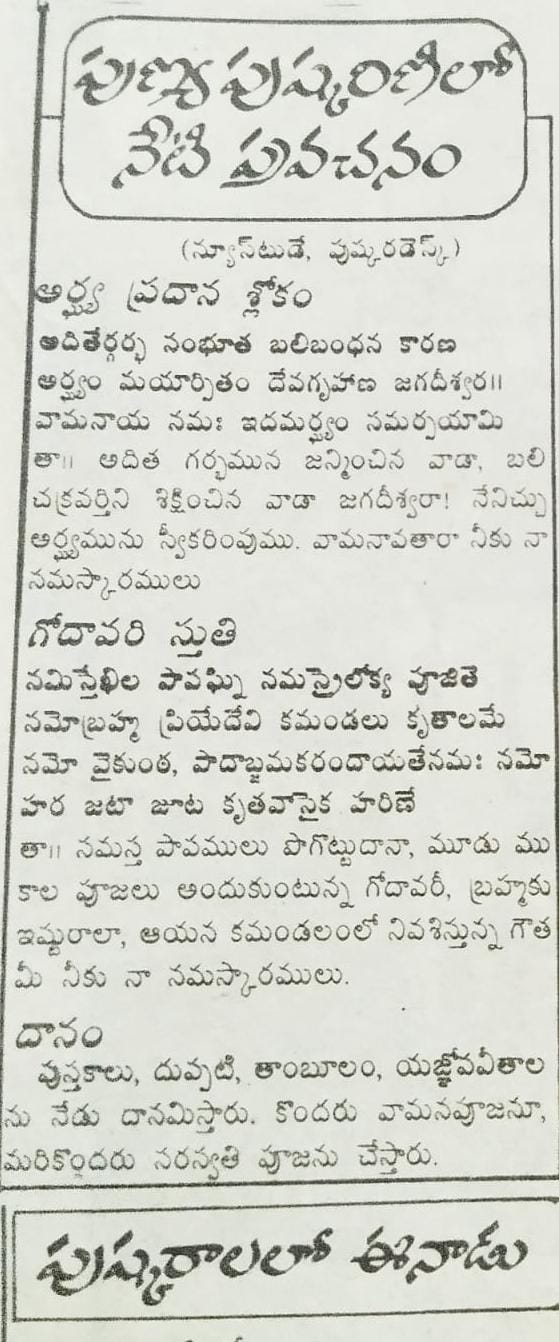 పుణ్య పుష్కరిణిలో
నేటి ప్రవచనం
(న్యూస్‌టుడే, పుష్కరడెస్క్)
అర్ఘ్య ప్రదాన శ్లోకం
అదితేర్గర్భ సంభూత బలిబంధన కారణ
అర్ఘ్యం మయార్పితం దేవగృహాణ జగదీశ్వర॥
వామనాయ నమః ఇదమర్ఘ్యం సమర్పయామి
తా॥ అదిత గర్భమున జన్మించిన వాడా, బలి
చక్రవర్తిని శిక్షించిన వాడా జగదీశ్వరా! నేనిచ్చు
అర్ఘ్యమును స్వీకరింపుము. వామనావతారా నీకు నా
నమస్కారములు
గోదావరి స్తుతి
నమస్తేఖిల పాపఘ్ని నమస్త్రైలోక్య పూజితే
నమోబ్రహ్మ ప్రియేదేవి కమండలు కృతాలమే
నమో వైకుంఠ, పాదాబ్జమకరందాయతేనమః నమో
హర జటా జూట కృతవాసైక హరిణే
తా॥ సమస్త పాపములు పొగొట్టుదానా, మూడు ము
కాల పూజలు అందుకుంటున్న గోదావరీ, బ్రహ్మకు
ఇష్టురాలా, ఆయన కమండలంలో నివశిస్తున్న గౌత
మీ నీకు నా నమస్కారములు.
దానం
పుస్తకాలు, దుప్పటి, తాంబూలం, యజ్ఞోపవీతాల
ను నేడు దానమిస్తారు. కొందరు వామనపూజనూ,
మరికొందరు సరస్వతి పూజను చేస్తారు.
పుష్కరాలలో ఈనాడు